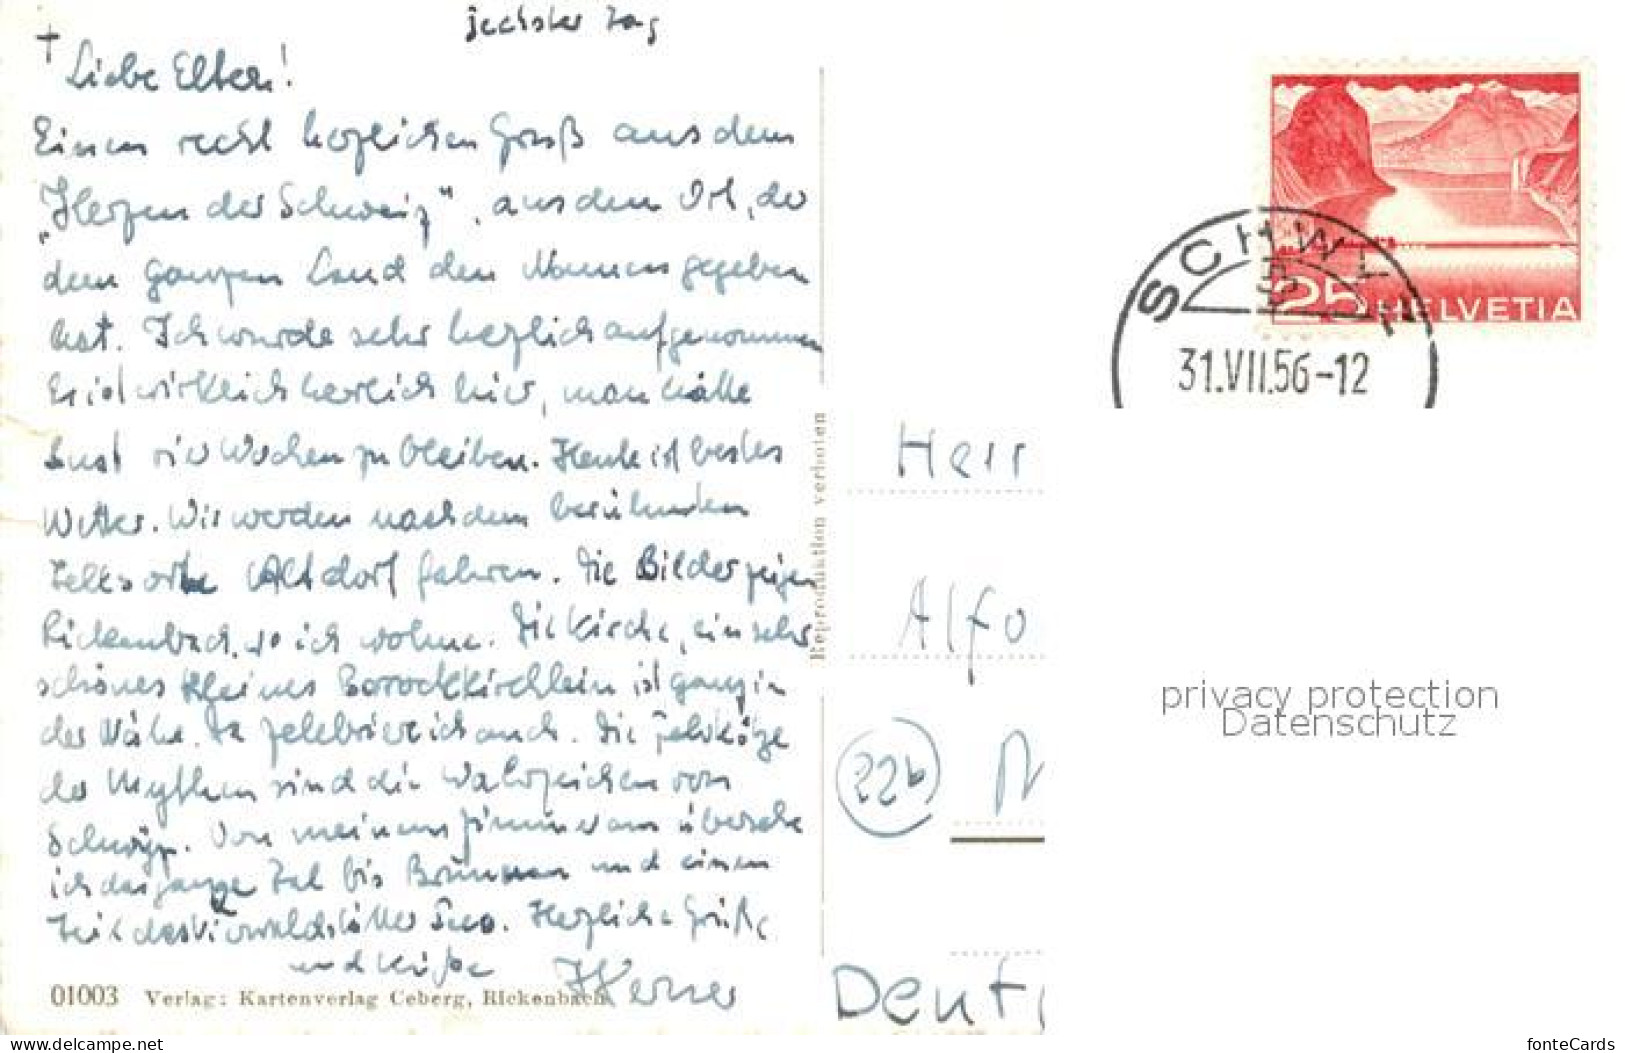 sechster Tag
† Liebe Eltern!
Einen recht herzlichen Gruß aus dem
„Herzen der Schweiz", aus dem Ort, der
dem ganzen Land den Namen gegeben
hat. Ich wurde sehr herzlich aufgenommen
Es ist wirklich herrlich hier, man hätte
Lust vier Wochen zu bleiben. Heute ist bestes
Wetter. Wir werden nach dem berühmten
Tellsorte Altdorf fahren. Die Bilder zeigen
Rickenbach, wo ich wohne. Die Kirche, ein sehr
schönes kleines Barockkirchlein ist ganz in
der Nähe. Da zelebriere ich auch. Die
der Mythen sind die Wahrzeichen von
Schwyz. Von meinem Zimmer aus übersehe
ich das ganze Tal bis Brunnen und einen
Teil des Vierwaldstätter Sees. Herzliche Grüße
und Küsse Werner
01003 Verlag: Kartenverlag Ceberg, Rickenbach
Reproduktion verboten
HELVETIA
25
SCHWYZ
31.VII.56-12
Herr
Alfo
(22b) M
Deut
privacy protection
Datenschutz
www.delcampe.net
fonteCards